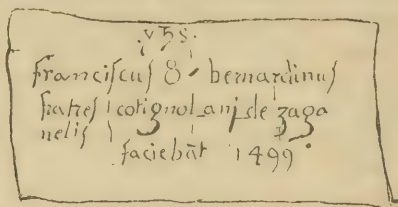 ·yħs·
franciſcuſ & bernardinuſ
fratreſ cotignolanj de zaga
neliſ
faciebāt 1499·